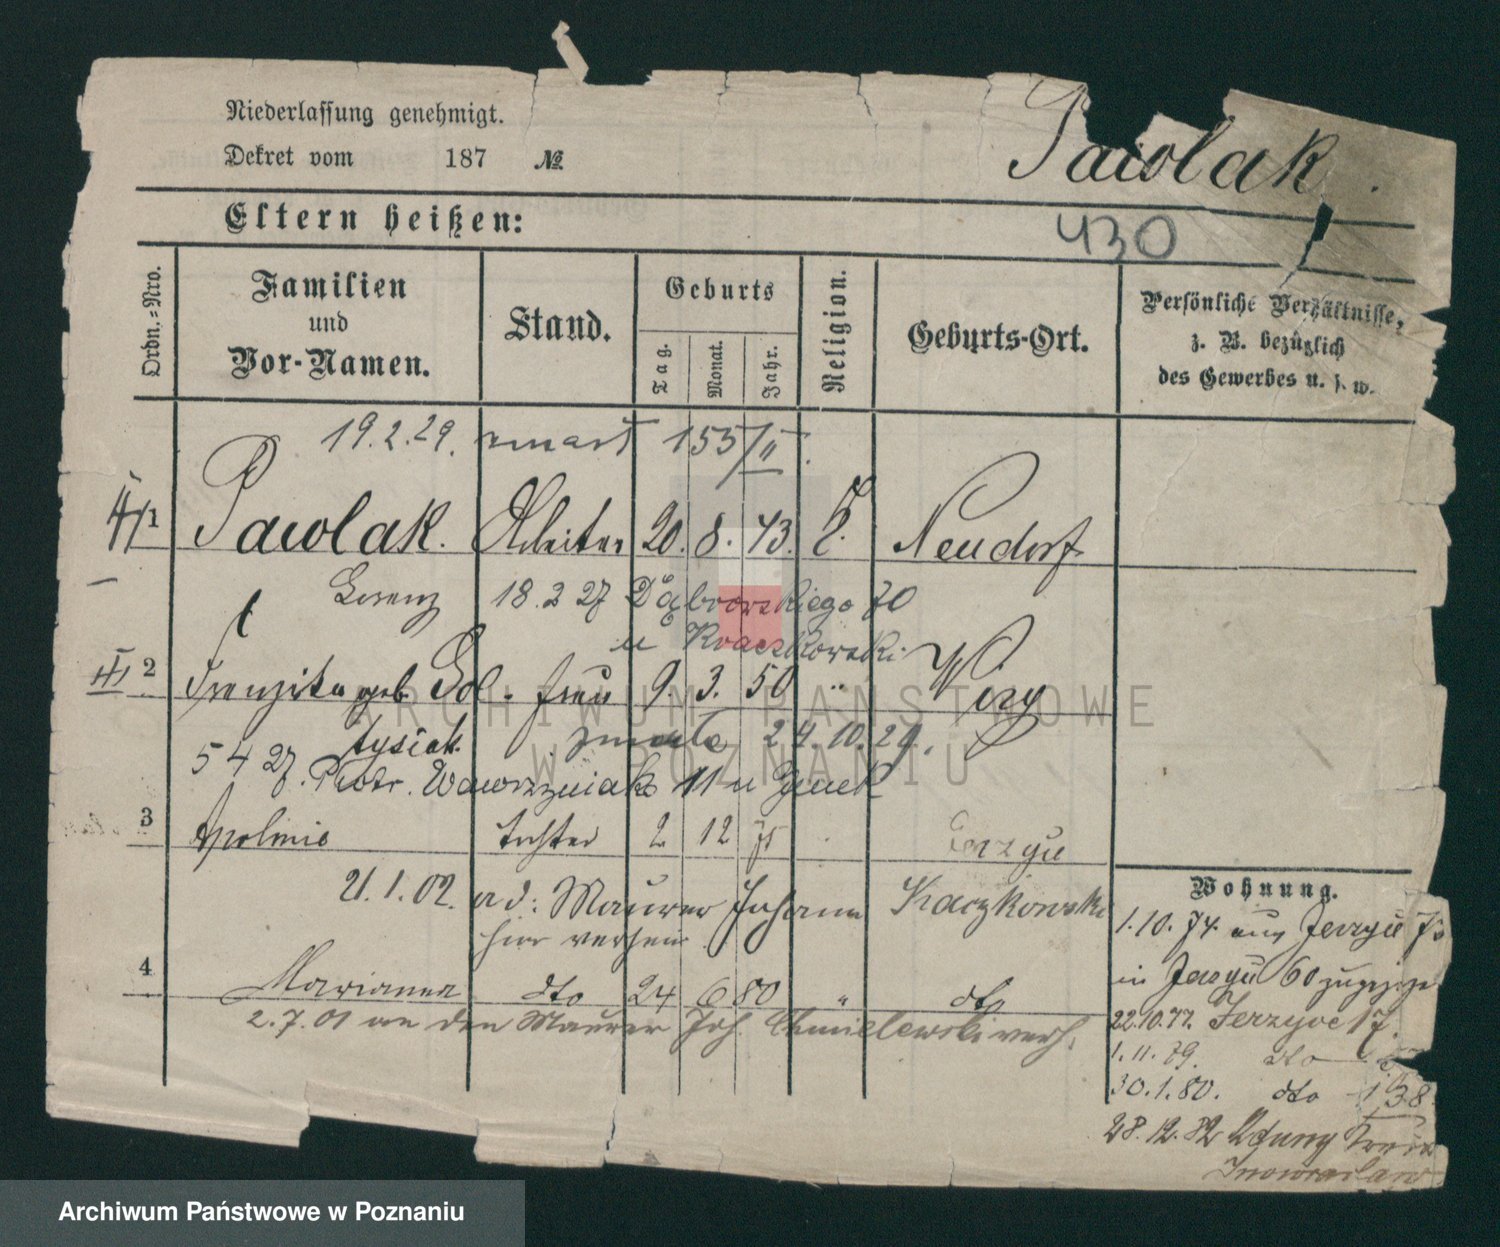 Niederlassung genehmigt.
Dekret vom 187 №
Pawolak.
Eltern heißen:
430
Ordn.-Nro.
Familien
und
Vor-Namen.
Stand.
Geburts
Tag.
Monat.
Jahr.
Religion.
Geburts-Ort.
Persönliche Verhältnisse,
z. B. bezüglich
des Gewerbes u. s. w.
19.2.29. zmarł 153/II.
1 Pawolak. Arbeiter 20. 8. 43. k. Neudorf
Lorenz 18.2 27 Dąbrowskiego 70
u Kraczkowski
2 Franziska geb. Gol- frau 9. 3. 50 " Wiry
tysiak. zmarła 24.10.29.
5 4 27. Piotr. Wawrzyniak 11 u
3 Apolonie tochter 2 12 75 Jerzyce
21.1.02. a d: Maurer Johann Kaczkowski
hier verheir
4 Marianna dto 24 6 80 " dto
2.7.01 an den Maurer Joh. Chmielewski verh.
Wohnung.
1.10.74. aus Jerzyce
in Jerzyce 60
22.10.77. Jerzyce 17.
1.11.79. dto
30.1.80. dto 138.
28.12.82
Inowraclaw
ARCHIWUM PAŃSTWOWE
W POZNANIU
Archiwum Państwowe w Poznaniu